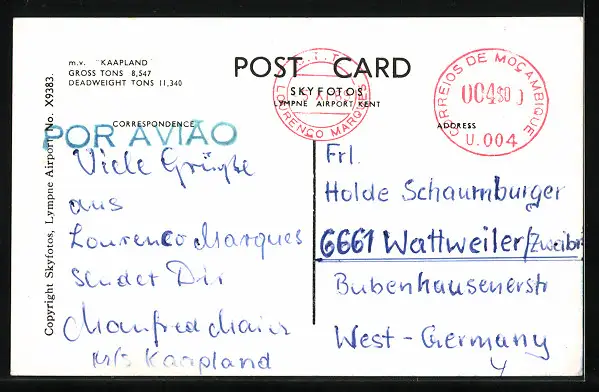 m.v. "KAAPLAND
GROSS TONS 8,547
DEADWEIGHT TONS 11,340
POST CARD
SKYFOTOS
LYMPNE AIRPORT KENT
LOURENÇO MARQUES
CORREIOS DE MOÇAMBIQUE
004$00
U.004
CORRESPONDENCE
ADDRESS
POR AVIÃO
Copyright Skyfotos, Lympne Airport. No. X9383.
Viele Grüße
aus
Lourenco Marques
sendet Dir
Manfred Maier
m/s Kaapland
Frl.
Holde Schaumburger
6661 Wattweiler/Zweibr
Bubenhausenerstr
West-Germany